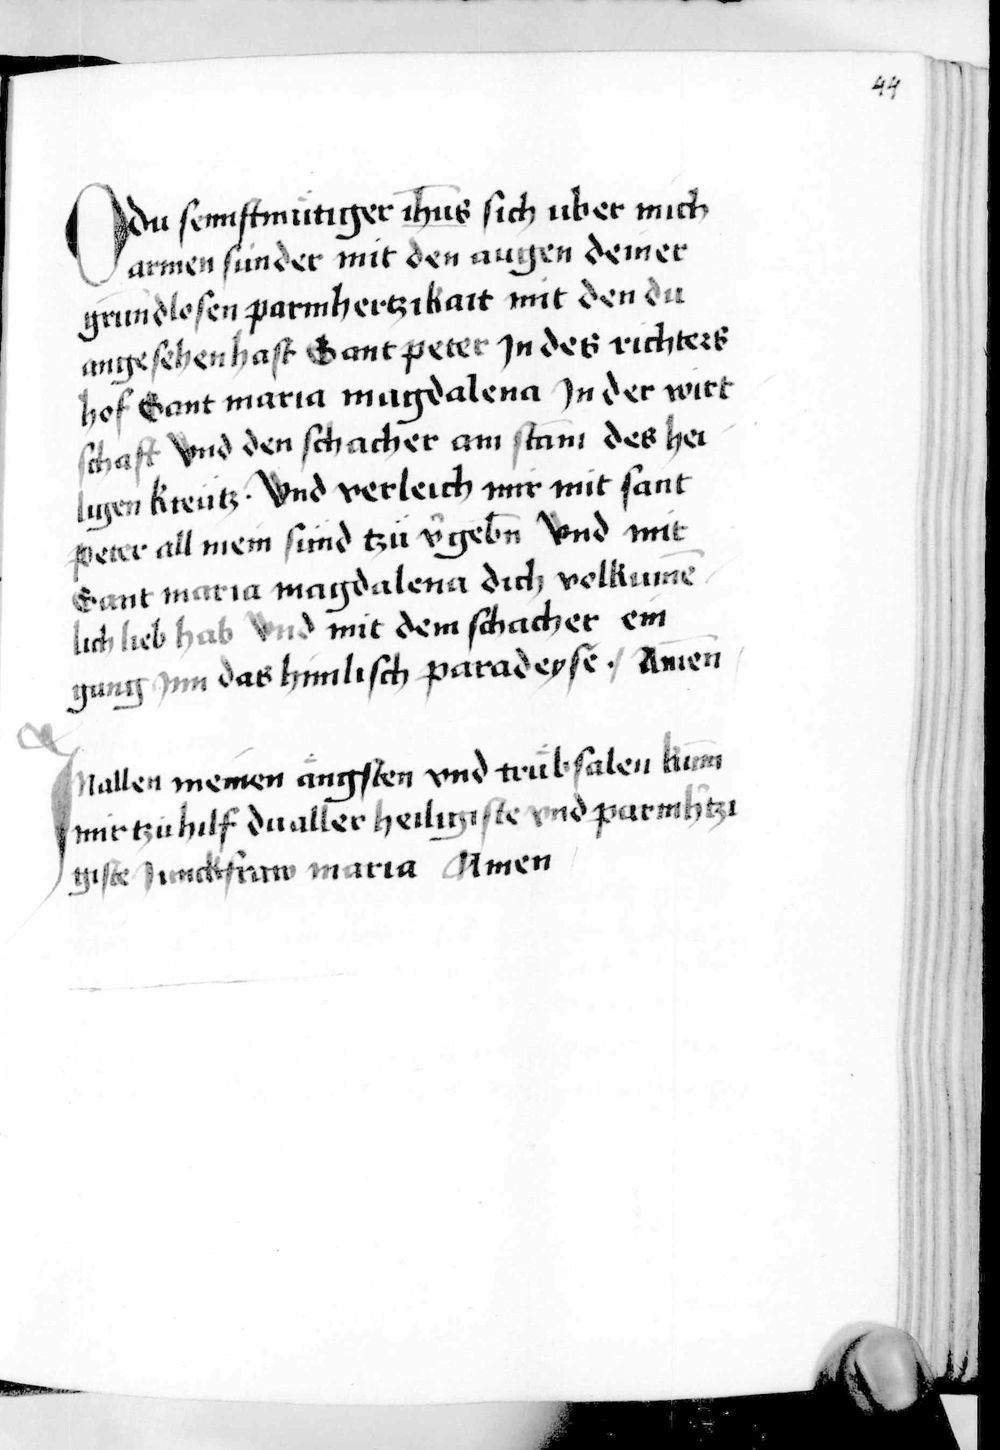 44
O du semftmuͤtiger ih̅us sich uber mich
armen sunder mit den augen deiner
grundlosen parmhertzikait mit den du
angesehen hast Sant peter In des richters
hof Sant maria magdalena In der wirt
schaft Vnd den schacher am stam̅ des hei
ligen kreutz · Vnd verleich mir mit sant
peter all mein sünd tzü v̾gebn̅ Vnd mit
Sant maria magdalena dich volkume̅
lich lieb hab Vnd mit dem schacher ein
gung Inn das himlisch paradeyse ·/ Amen
IN allen meinen aͤngsten vnd truͤbsalen kum̅
mir tzü hilf du aller heiligiste vnd parmh̾tzi
giste Junckfraw maria Amen